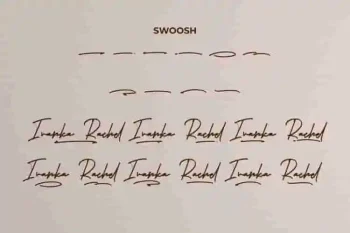 SWOOSH
Ivanka Rachel Ivanka Rachel Ivanka Rachel
Ivanka Rachel Ivanka Rachel Ivanka Rachel